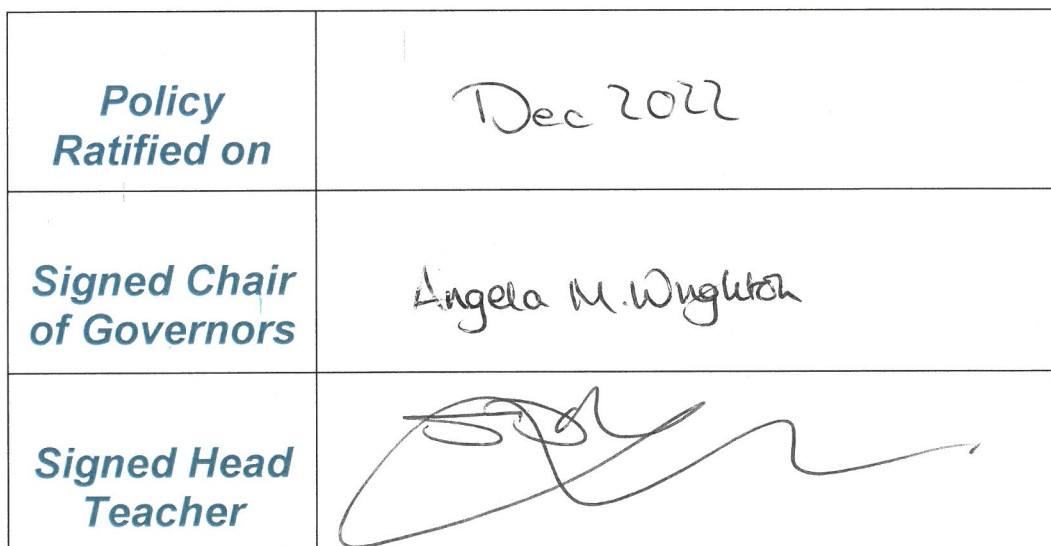 Policy
Ratified on
Dec 2022
Signed Chair
of Governors
Angela M. Wrighton
Signed Head
Teacher